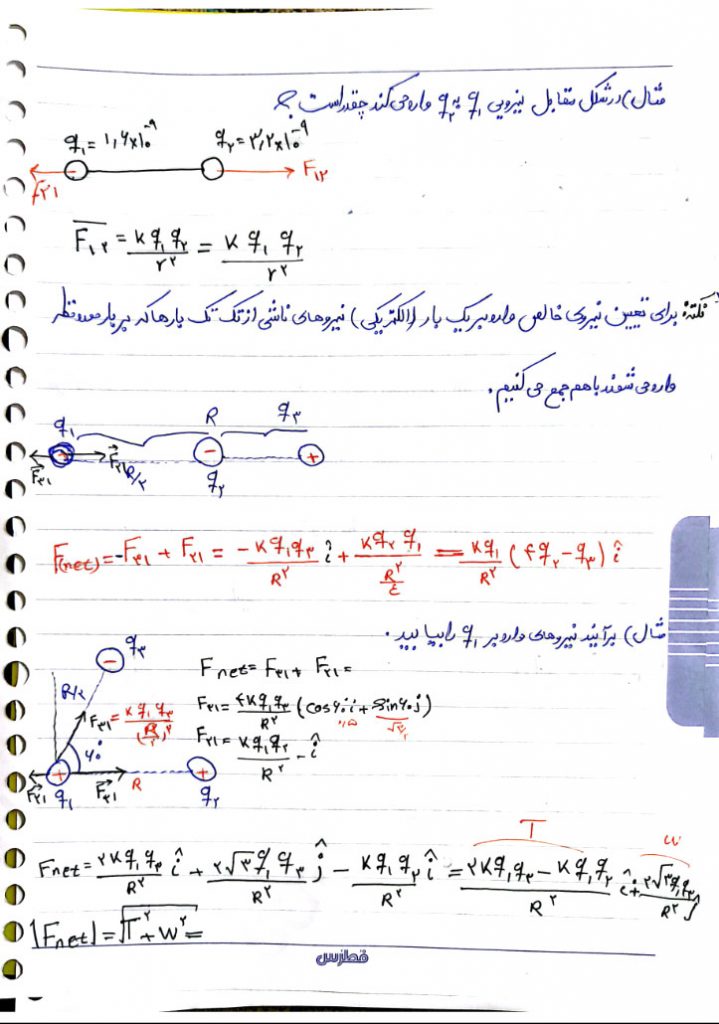 مثال) در شکل مقابل نیرویی q₁ به q₂ وارد می کند چقدر است ؟
q₁ = ۱,۶×۱۰⁻⁹ q₂ = ۳,۲×۱۰⁻⁹
F₂₁ F₁₂
F₁₂ = K q₁ q₂ / r² = K q₁ q₂ / r²
نکته: برای تعیین نیروی خالص وارد بر یک بار (الکتریکی) نیروهای ناشی از تک تک بارها که بر بار مورد نظر
وارد می شوند با هم جمع می کنیم.
q₁ R q₃
F₃₁ + F₂₁ R/۲ - +
q₂
F(net) = -F₃₁ + F₂₁ = -K q₁ q₃ / R² î + K q₂ q₁ / (R²/٤) = K q₁ / R² (۴q₂ - q₃) î
مثال) برآیند نیروهای وارد بر q₁ را بیابید.
q₃
-
R/۲ Fnet = F₃₁ + F₂₁ =
F₃₁ = K q₁ q₃ / (R/۲)² F₃₁ = ۴K q₁ q₃ / R² (cos۶۰ i + sin۶۰ j)
۰/۵ √۳/۲
۶۰° F₂₁ = K q₁ q₂ / R² - î
F₂₁ + F₂₁ R +
q₁ q₂
T w
Fnet = ۲K q₁ q₃ / R² î + ۲√۳ q₁ q₃ / R² ĵ - K q₁ q₂ / R² î = ۲K q₁ q₃ - K q₁ q₂ / R² î + ۲√۳ q₁ q₃ / R² ĵ
|Fnet| = √T² + W² =